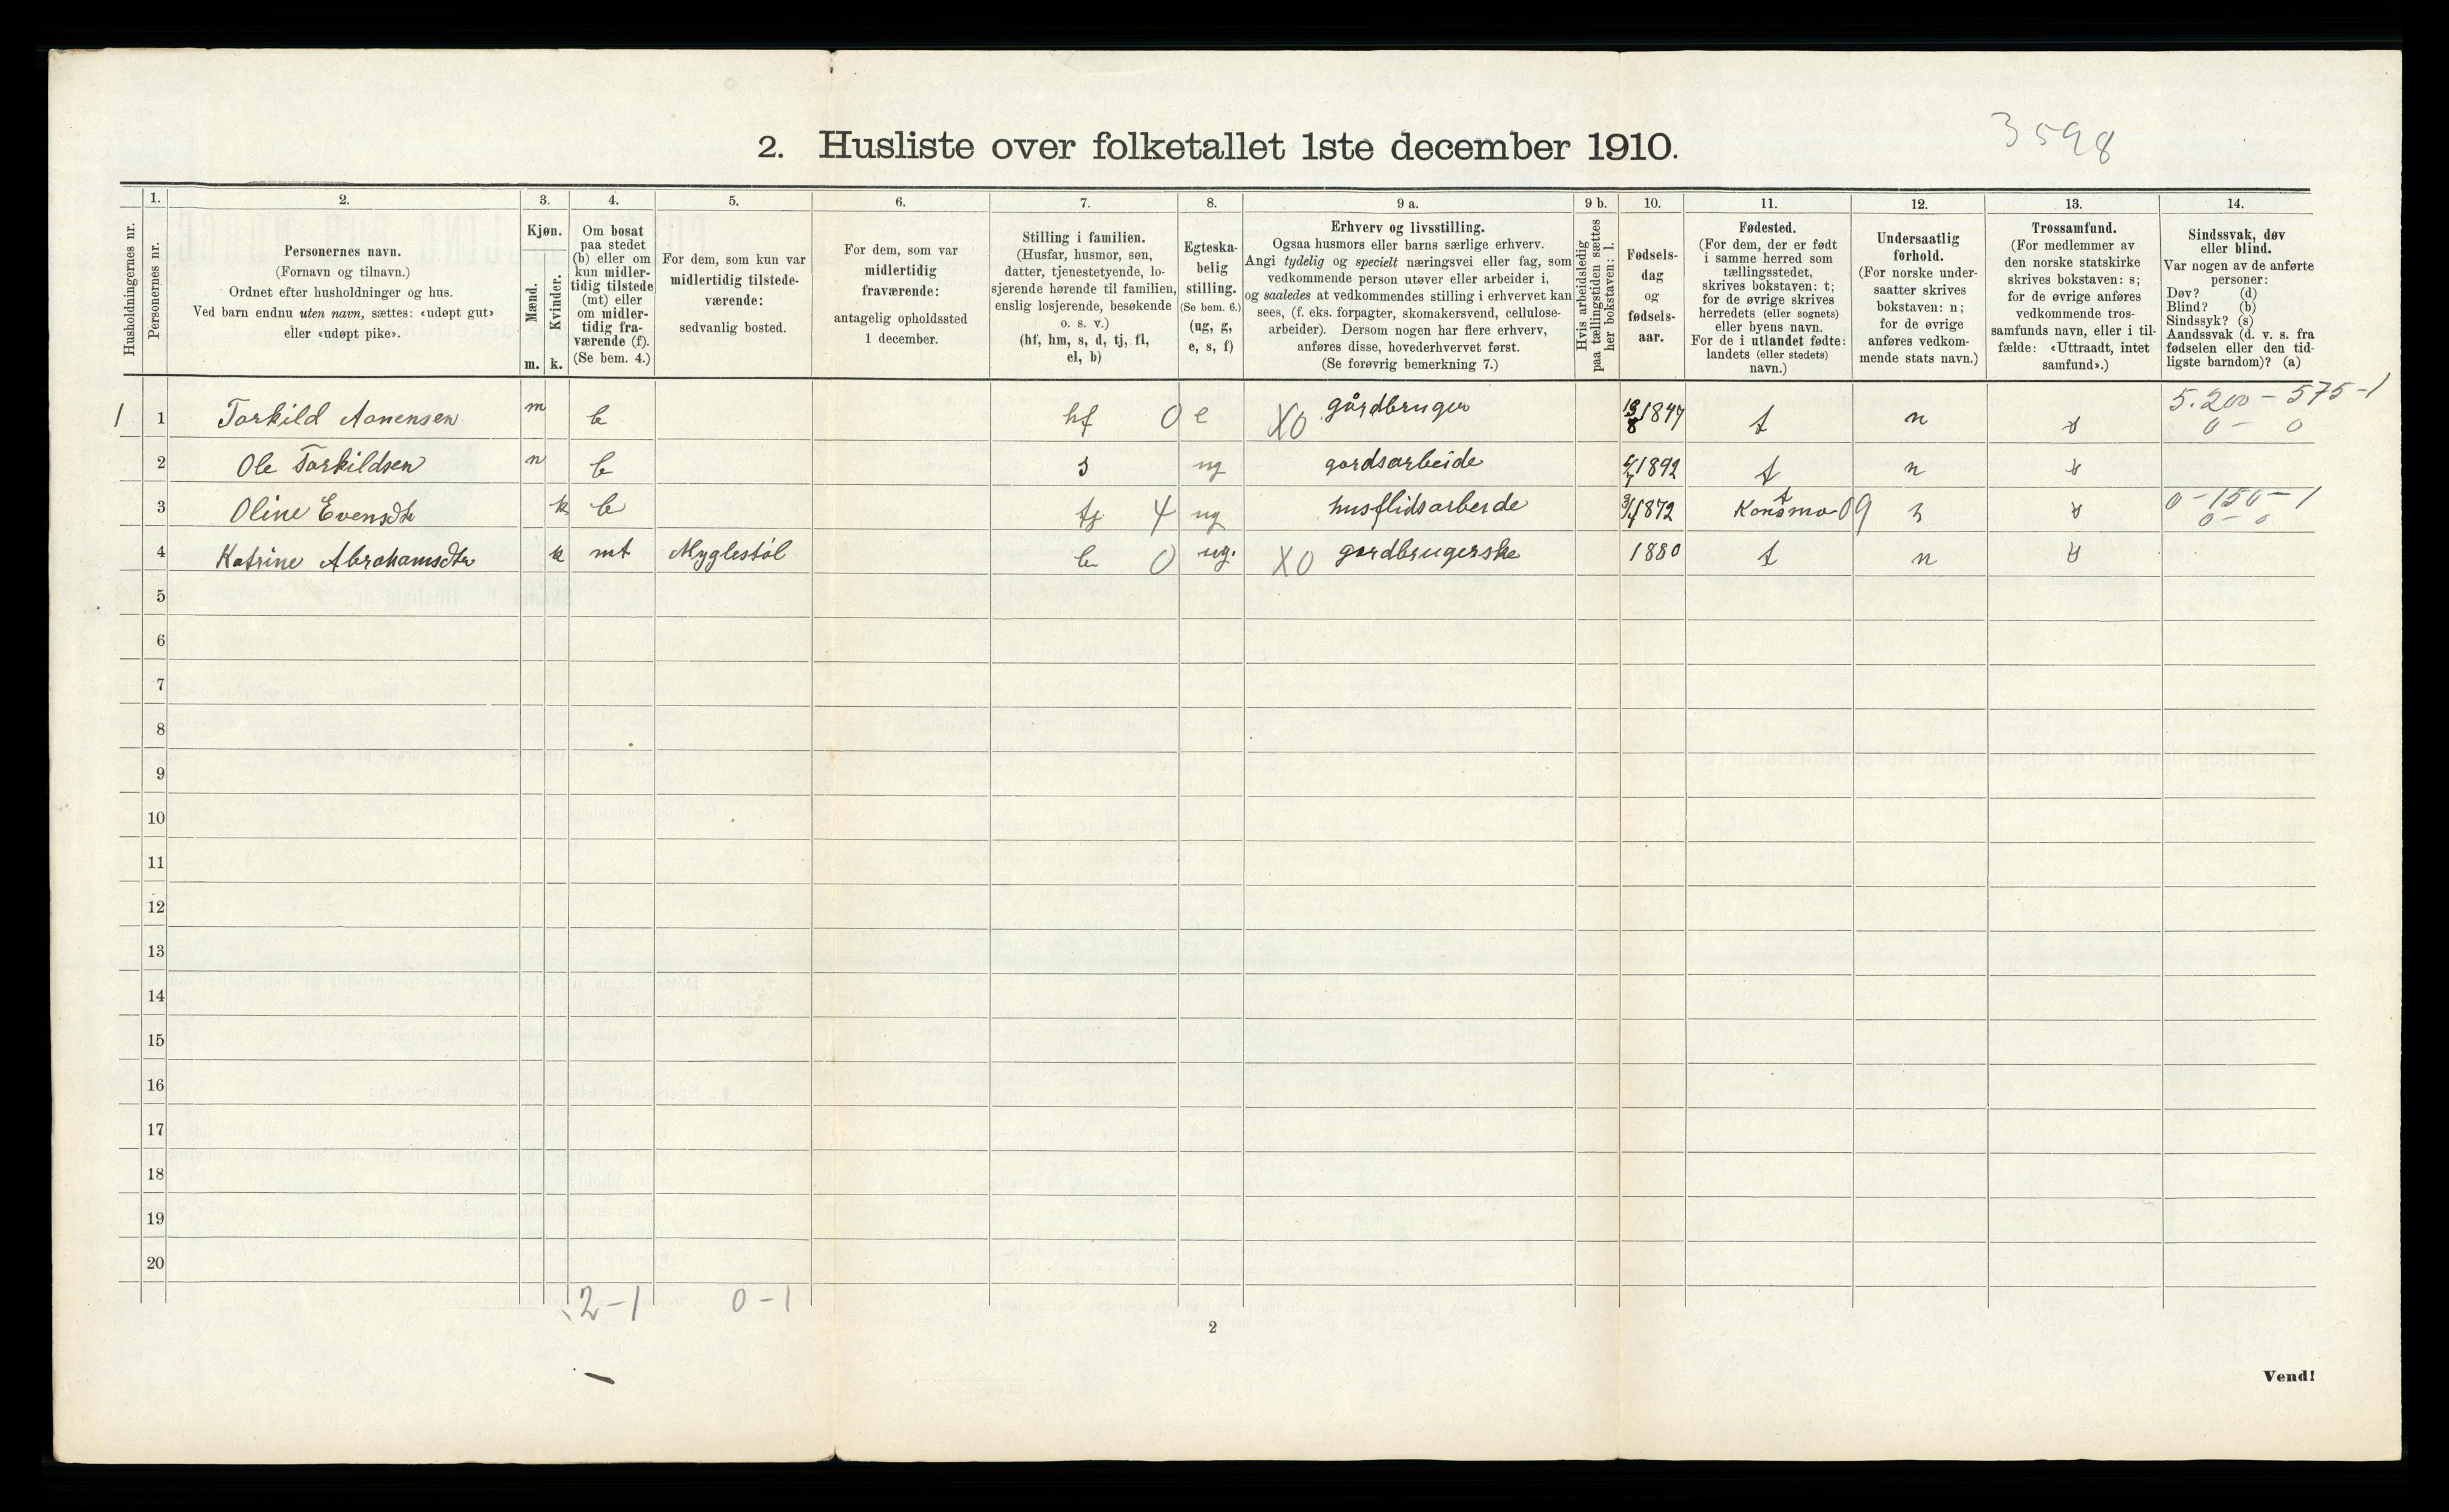 3598
2. Husliste over folketallet 1ste december 1910.
Husholdningernes nr.
1.
Personernes nr.
2.
Personernes navn.
(Fornavn og tilnavn.)
Ordnet efter husholdninger og hus.
Ved barn endnu uten navn, sættes: «udøpt gut»
eller «udøpt pike».
3.
Kjøn.
Mænd.
Kvinder.
m. k.
4.
Om bosat
paa stedet
(b) eller om
kun midler-
tidig tilstede
(mt) eller
om midler-
tidig fra-
værende (f).
(Se bem. 4.)
5.
For dem, som kun var
midlertidig tilstede-
værende:
sedvanlig bosted.
6.
For dem, som var
midlertidig
fraværende:
antagelig opholdssted
1 december.
7.
Stilling i familien.
(Husfar, husmor, søn,
datter, tjenestetyende, lo-
sjerende hørende til familien,
enslig losjerende, besøkende
o. s. v.)
(hf, hm, s, d, tj, fl,
el, b)
8.
Egteska-
belig
stilling.
(Se bem. 6.)
(ug, g,
e, s, f)
9 a.
Erhverv og livsstilling.
Ogsaa husmors eller barns særlige erhverv.
Angi tydelig og specielt næringsvei eller fag, som
vedkommende person utøver eller arbeider i,
og saaledes at vedkommendes stilling i erhvervet kan
sees, (f. eks. forpagter, skomakersvend, cellulose-
arbeider). Dersom nogen har flere erhverv,
anføres disse, hovederhvervet først.
(Se forøvrig bemerkning 7.)
9 b.
Hvis arbeidsledig
paa tællingstiden sættes
her bokstaven: l.
10.
Fødsels-
dag
og
fødsels-
aar.
11.
Fødested.
(For dem, der er født
i samme herred som
tællingsstedet,
skrives bokstaven: t;
for de øvrige skrives
herredets (eller sognets)
eller byens navn.
For de i utlandet fødte:
landets (eller stedets)
navn.)
12.
Undersaatlig
forhold.
(For norske under-
saatter skrives
bokstaven: n;
for de øvrige
anføres vedkom-
mende stats navn.)
13.
Trossamfund.
(For medlemmer av
den norske statskirke
skrives bokstaven: s;
for de øvrige anføres
vedkommende tros-
samfunds navn, eller i til-
fælde: «Uttraadt, intet
samfund».)
14.
Sindssvak, døv
eller blind.
Var nogen av de anførte
personer:
Døv? (d)
Blind? (b)
Sindssyk? (s)
Aandssvak (d. v. s. fra
fødselen eller den tid-
ligste barndom)? (a)
5.200 - 575-1
1 1 Torkild Aanensen m b hf 0 e X0 gårdbruger 13/8 1847 t n s 0 - 0
2 Ole Torkildsen m b s ug gardsarbeide 1892 t n s
3 Oline Evensdtr k b tj 4 ug husflidsarbeide 1872 Konsmo 09 n s 0-150-1
0-0
4 Katrine Abrahamsdtr k mt Myglestøl b 0 ug. X0 gardbrugerske 1880 t n s
5
6
7
8
9
10
11
12
13
14
15
16
17
18
19
20
2-1 0-1
2
Vend!